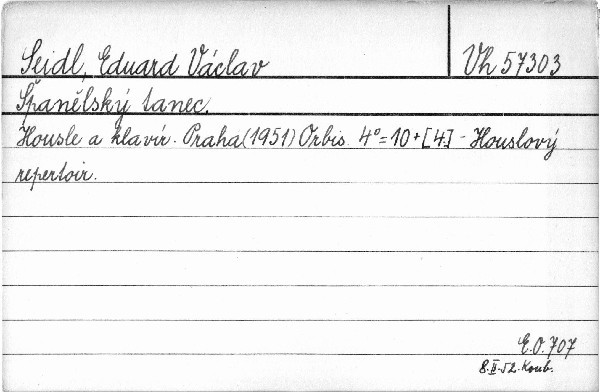 Seidl, Eduard Václav
Vh 57303
Španělský tanec.
Housle a klavír. Praha (1951) Orbis. 4° = 10 + [4] - Houslový
repertoir.
E.O. 707
8.II.52. Koub.